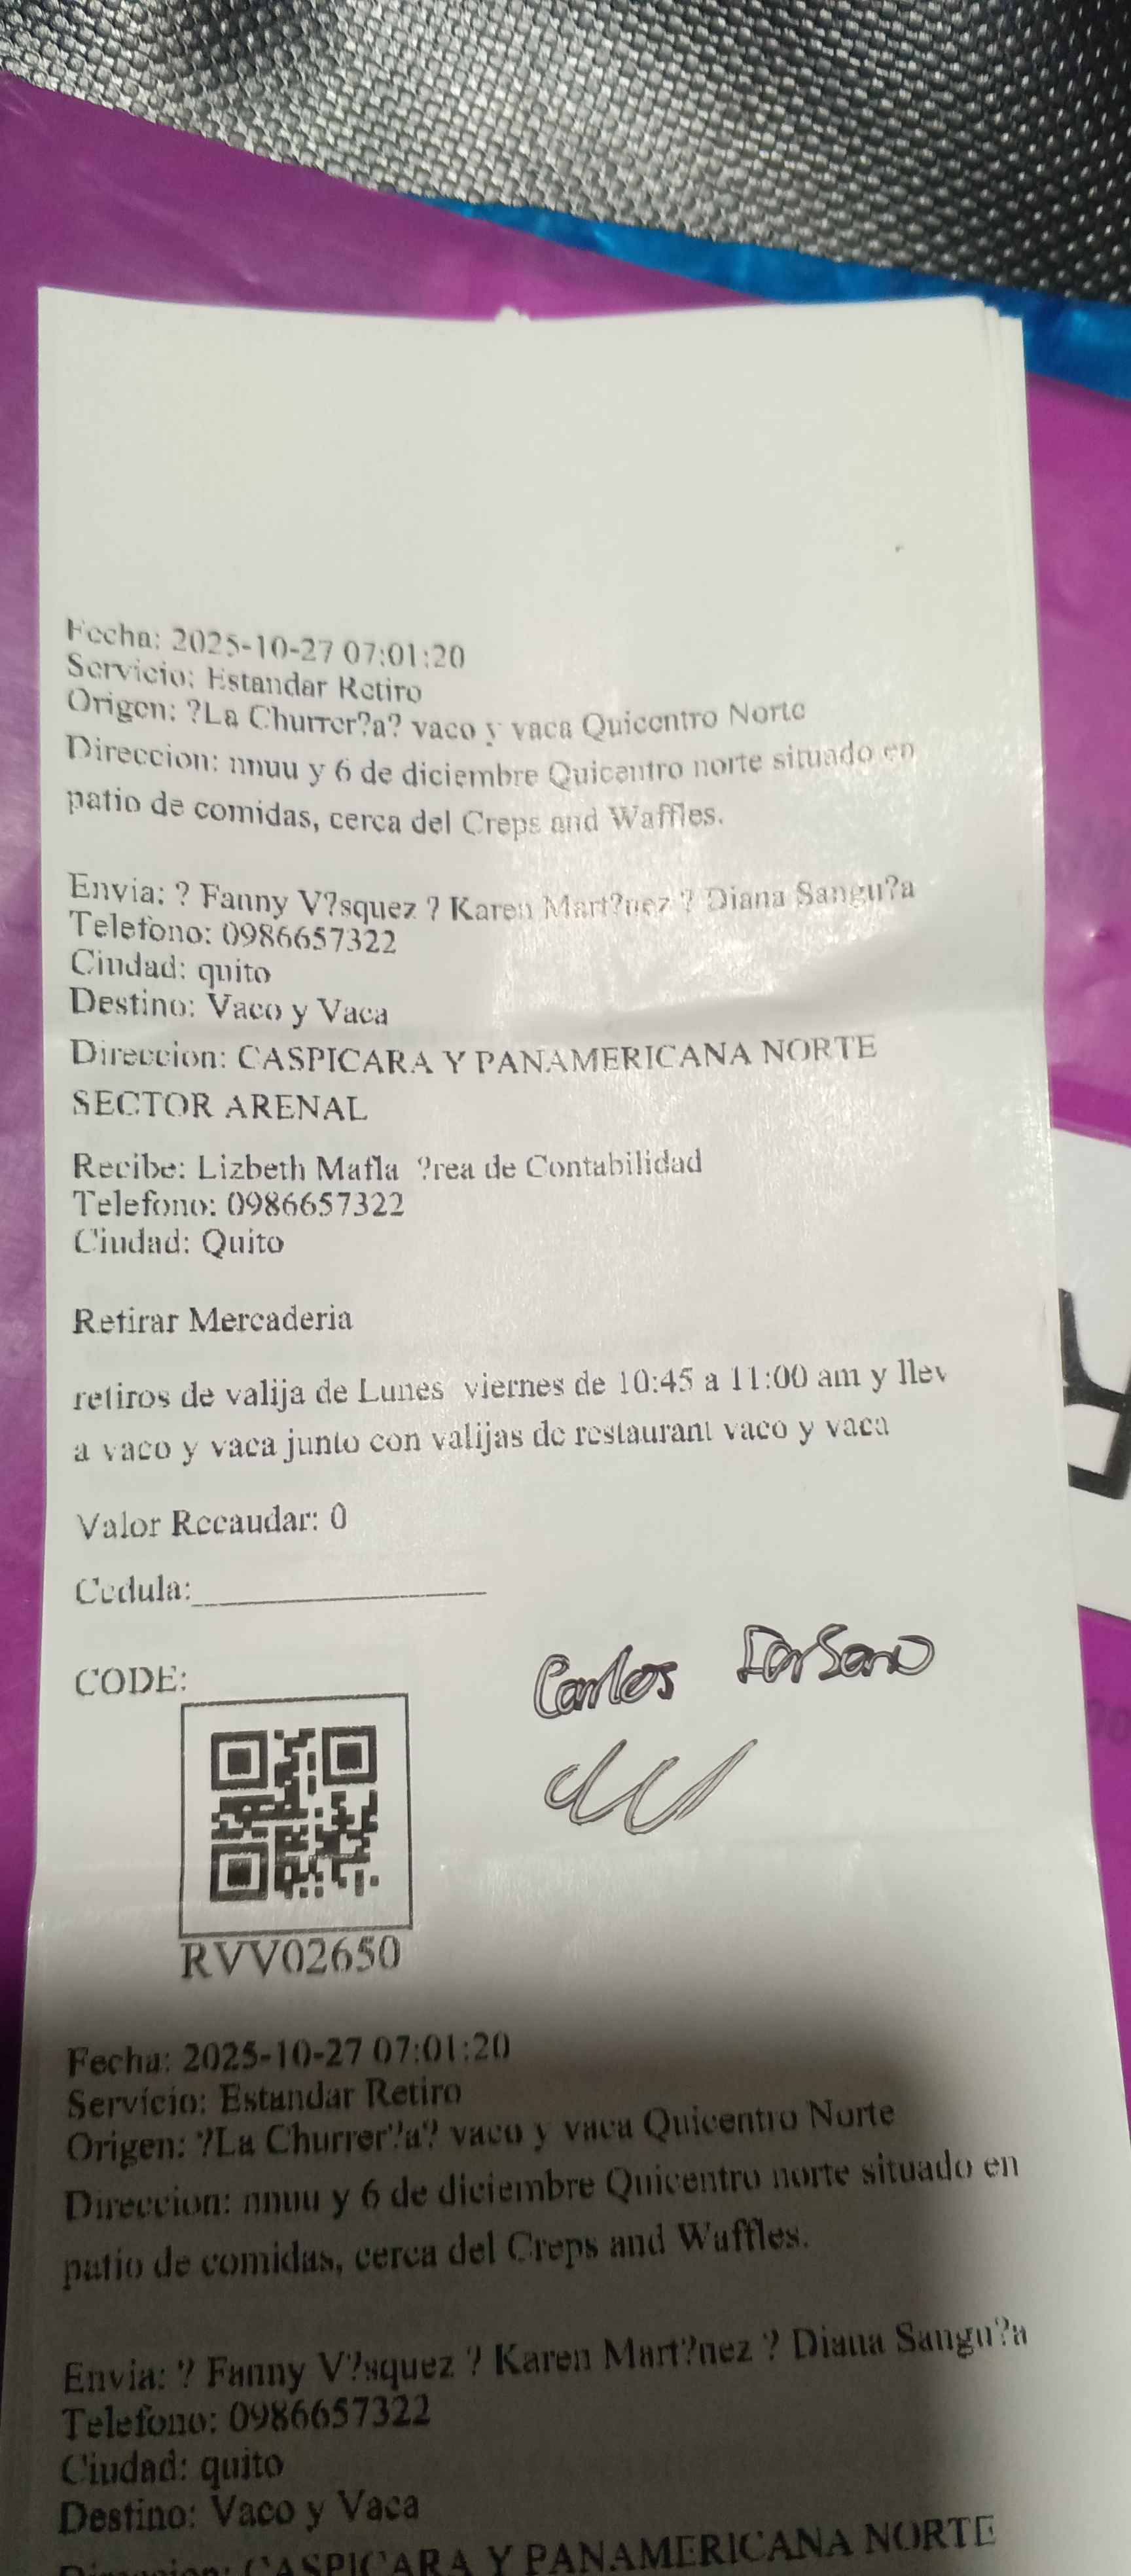 Fecha: 2025-10-27 07:01:20
Servicio: Estandar Retiro
Origen: ?La Churrer?a? vaco y vaca Quicentro Norte
Direccion: nnuu y 6 de diciembre Quicentro norte situado en
patio de comidas, cerca del Creps and Waffles.
Envia: ? Fanny V?squez ? Karen Mart?nez ? Diana Sangu?a
Telefono: 0986657322
Ciudad: quito
Destino: Vaco y Vaca
Direccion: CASPICARA Y PANAMERICANA NORTE
SECTOR ARENAL
Recibe: Lizbeth Mafla ?rea de Contabilidad
Telefono: 0986657322
Ciudad: Quito
Retirar Mercaderia
retiros de valija de Lunes viernes de 10:45 a 11:00 am y llev
a vaco y vaca junto con valijas de restaurant vaco y vaca
Valor Recaudar: 0
Cedula:_______________
CODE:
Carlos
RVV02650
Fecha: 2025-10-27 07:01:20
Servicio: Estandar Retiro
Origen: ?La Churrer?a? vaco y vaca Quicentro Norte
Direccion: nnuu y 6 de diciembre Quicentro norte situado en
patio de comidas, cerca del Creps and Waffles.
Envia: ? Fanny V?squez ? Karen Mart?nez ? Diana Sangu?a
Telefono: 0986657322
Ciudad: quito
Destino: Vaco y Vaca
Direccion: CASPICARA Y PANAMERICANA NORTE